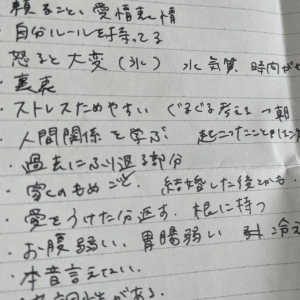 頼ること、愛情表情
・自分ルールを持ってる
・怒ると大変(氷) 水気質 時間が
・裏表
・ストレスためやすい ぐるぐる考える
・人間関係を学ぶ
・過去にふり返る部分
・家でのもめごと. 結婚した後とかも
・愛をうけた分返す. 根に持つ
・お腹弱い、胃腸弱い 冷え
・本音言えてない.
がある.